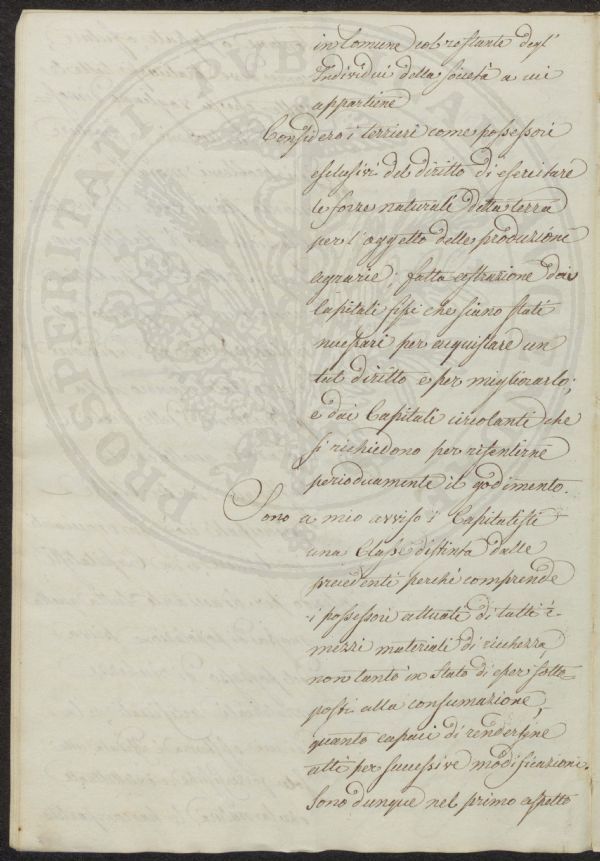 in Comune col restante degl'
Individui della società a cui
appartiene
Considero i terrieri come possessori
esclusivi del diritto di esercitare
le forze naturali della terra
per l'oggetto delle produzioni
agrarie; fatta astrazione dai
Capitali fissi che siano stati
necessari per acquistare un
tal diritto e per migliorarlo;
e dai Capitali circolanti che
si richiedono per risentirne
periodicamente il godimento.
Sono a mio avviso i Capitalisti
una Classe distinta dalle
precedenti perché comprende
i possessori attuali di tutti i
mezzi materiali di ricchezza,
non tanto in stato di esser sotto-
posti alla consumazione,
quanto capaci di rendersene
atti per successive modificazioni.
Sono dunque nel primo aspetto
PROSPERITATI PUBLICAE